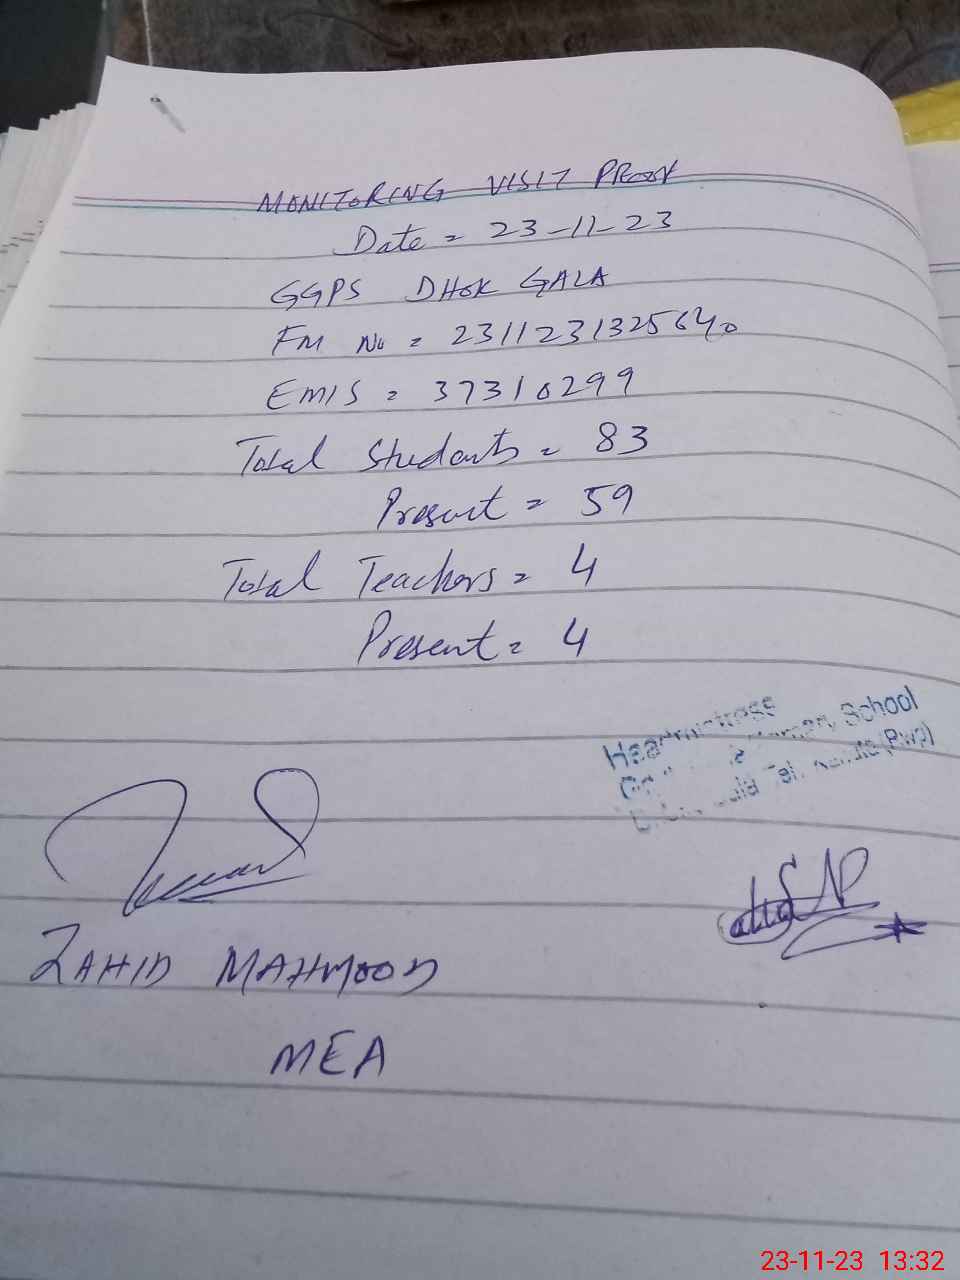 MONITORING VISIT PROOF
Date = 23-11-23
GGPS DHOK GALA
FM No = 2311231325640
EMIS = 37310299
Total Students = 83
Present = 59
Total Teachers = 4
Present = 4
Headmistress
School
Tel. (Rwp)
ZAHID MAHMOOD
MEA
23-11-23 13:32